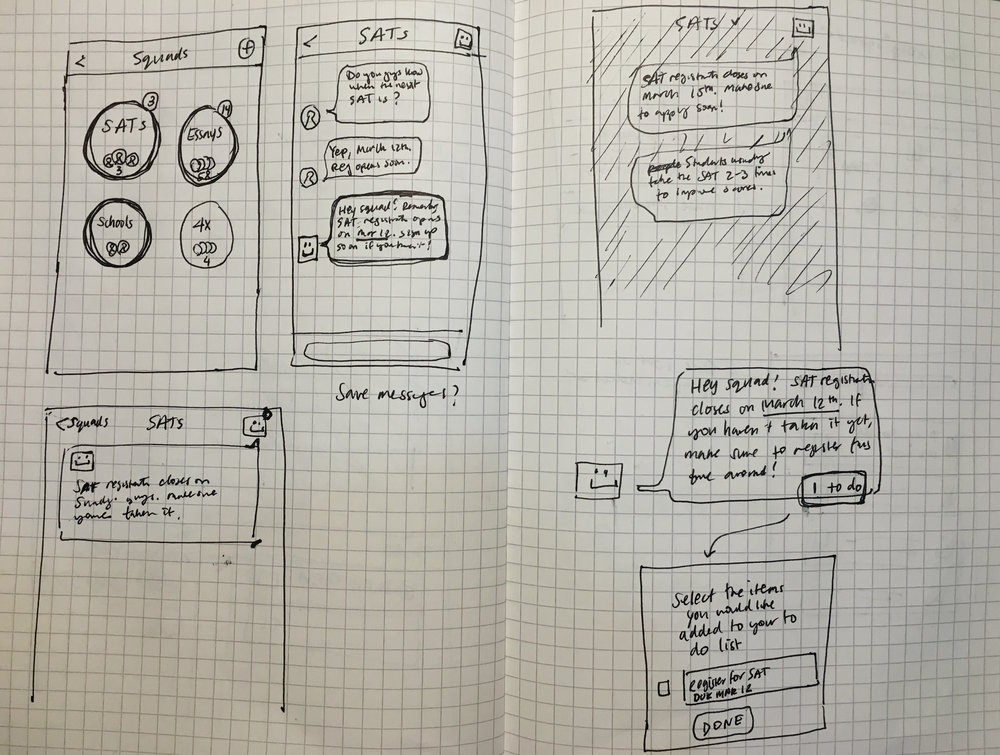 < Squads +
3
SATs
3
14
Essays
58
Schools
4x
4
< SATs
Do you guys know
when the next
SAT is?
R
Yep, March 12th.
Reg opens soon.
R
Hey squad! Remember
SAT registration opens
on Mar 12. Sign up
soon if you haven't!
Save messages?
< Squads SATs
SAT registration closes on
guys. make sure
taken it.
SATs
SAT registration closes on
March 15th. Make sure
to apply soon!
people Students usually
take the SAT 2-3 times
to improve scores.
Hey squad! SAT registration
closes on March 12th. If
you haven't taken it yet,
make sure to register this
time around!
1 to do
Select the items
you would like
added to your to
do list
Register for SAT
DUE MAR 12
DONE